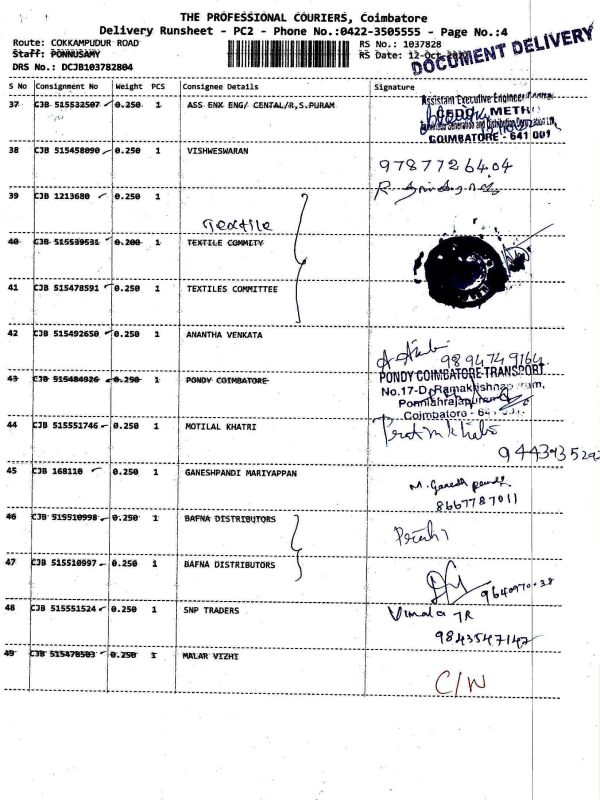 THE PROFESSIONAL COURIERS, Coimbatore
Delivery Runsheet - PC2 - Phone No.:0422-3505555 - Page No.:4
Route: COKKAMPUDUR ROAD RS No.: 1037828
Staff: PONNUSAMY RS Date: 12-Oct
DRS No.: DCJB103782804
DOCUMENT DELIVERY
S No Consignment No Weight PCS Consignee Details Signature
37 CJB 515532507 0.250 1 ASS ENX ENG/ CENTAL/R,S.PURAM
Assistant Executive Engineer
COIMBATORE - 641 001
38 CJB 515458090 0.250 1 VISHWESWARAN
9787726404
39 CJB 1213680 0.250 1
Textile
40 CJB 515539531 0.200 1 TEXTILE COMMITY
41 CJB 515478591 0.250 1 TEXTILES COMMITTEE
42 CJB 515492650 0.250 1 ANANTHA VENKATA
9894749164
43 CJB 515484926 0.250 1 PONDY COIMBATORE
PONDY COIMBATORE TRANSPORT
Coimbatore
44 CJB 515551746 0.250 1 MOTILAL KHATRI
45 CJB 168110 0.250 1 GANESHPANDI MARIYAPPAN
M. Ganesh pandi
8667787011
46 CJB 515510998 0.250 1 BAFNA DISTRIBUTORS
47 CJB 515510997 0.250 1 BAFNA DISTRIBUTORS
48 CJB 515551524 0.250 1 SNP TRADERS
Vimala
9843547147
49 CJB 515478503 0.250 1 MALAR VIZHI
C/N